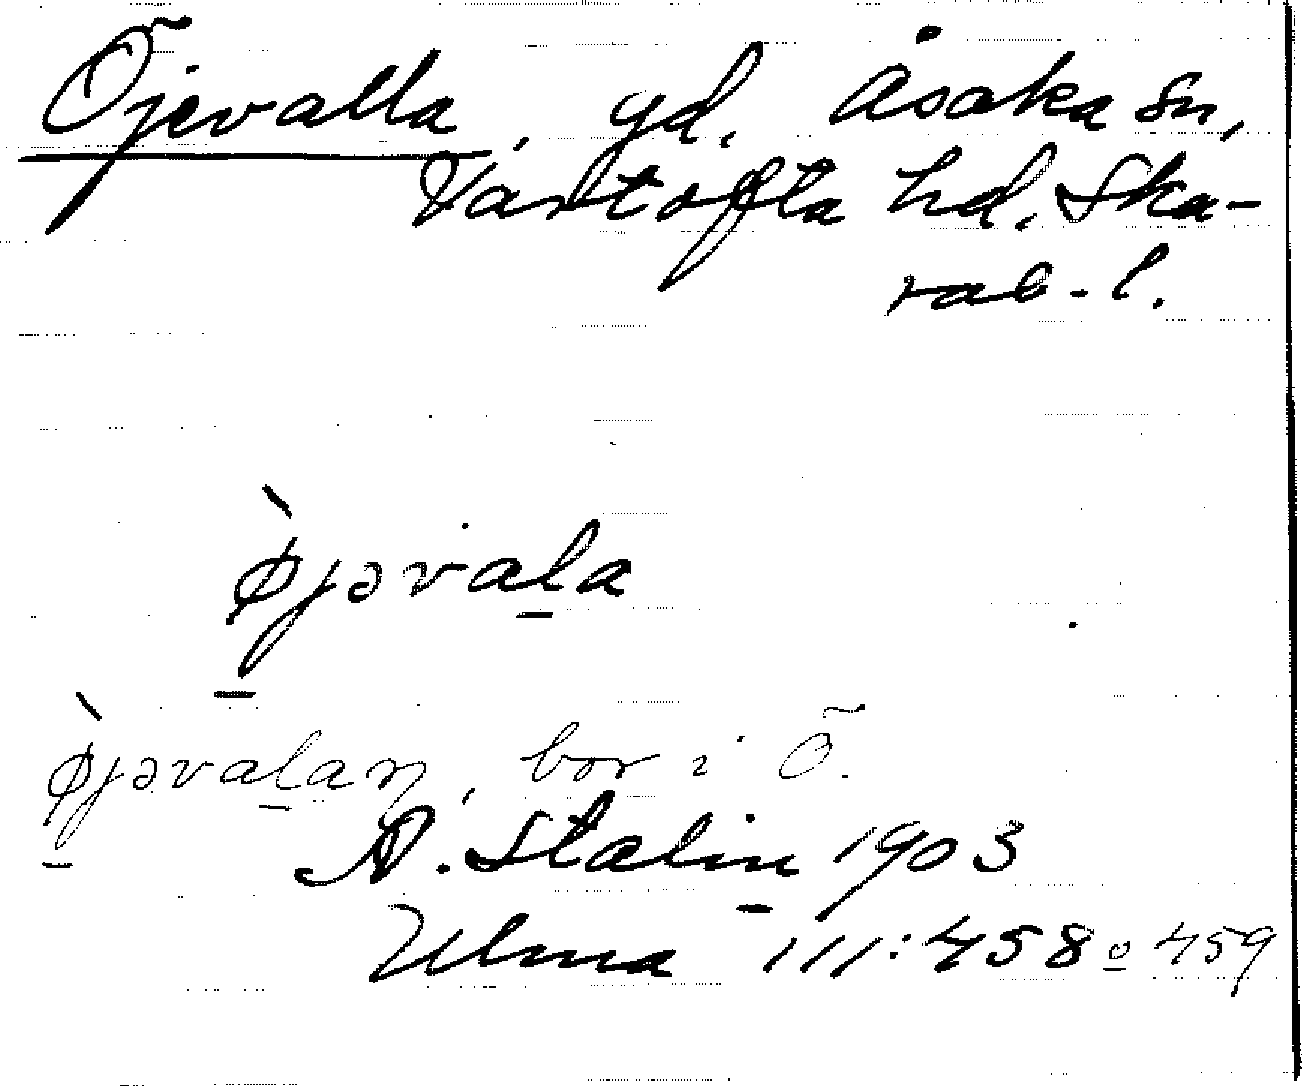 Öjevalla, gd. Åsaka sn,
Vartofta hd. Ska-
rab. l.
ø̀jəvala̠
ø̀jəvala̠n, bor i Ö.
A. Stalin 1903
Ulma 111:458 o 459